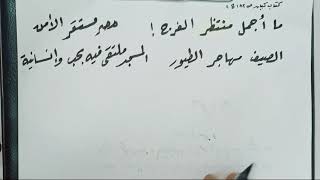 ما أجمل منتظر الفرج! مصر مستقر الأمن
الصيف مهاجر الطيور المسجد ملتقى فيه بحب وإنسانية